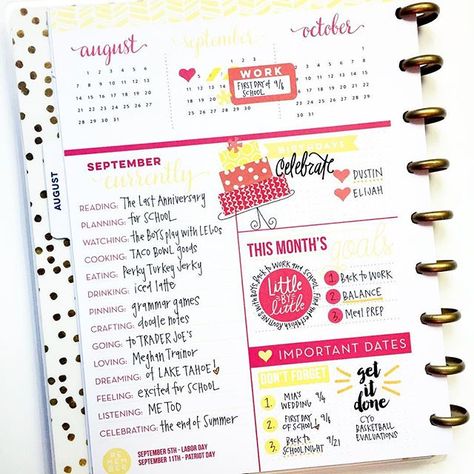 august
september
october
WORK
FIRST DAY OF 9/6
SCHOOL
SEPTEMBER
currently
READING: The Last Anniversary
PLANNING: for SCHOOL
WATCHING: the BOYS play with LEGOs
COOKING: TACO BOWL goods
EATING: Perky Turkey Jerky
DRINKING: iced latte
PINNING: grammar games
CRAFTING: doodle notes
GOING: to TRADER JOE'S
LOVING: Meghan Trainor
DREAMING: of LAKE TAHOE!
FEELING: excited for SCHOOL
LISTENING: ME TOO
CELEBRATING: the end of Summer
REMEMBER
SEPTEMBER 5TH - LABOR DAY
SEPTEMBER 11TH - PATRIOT DAY
AUGUST
BIRTHDAYS
Celebrate
DUSTIN
ELIJAH
THIS MONTH'S goals
little
BYE
little
1 BACK to WORK
2 BALANCE
3 MEAL PREP
IMPORTANT DATES
DON'T FORGET
1. MIA'S
WEDDING 9/4
2. FIRST DAY 9/6
OF SCHOOL!
3. BACK to
SCHOOL NIGHT 9/21
get
it
done
CYO
BASKETBALL
EVALUATIONS